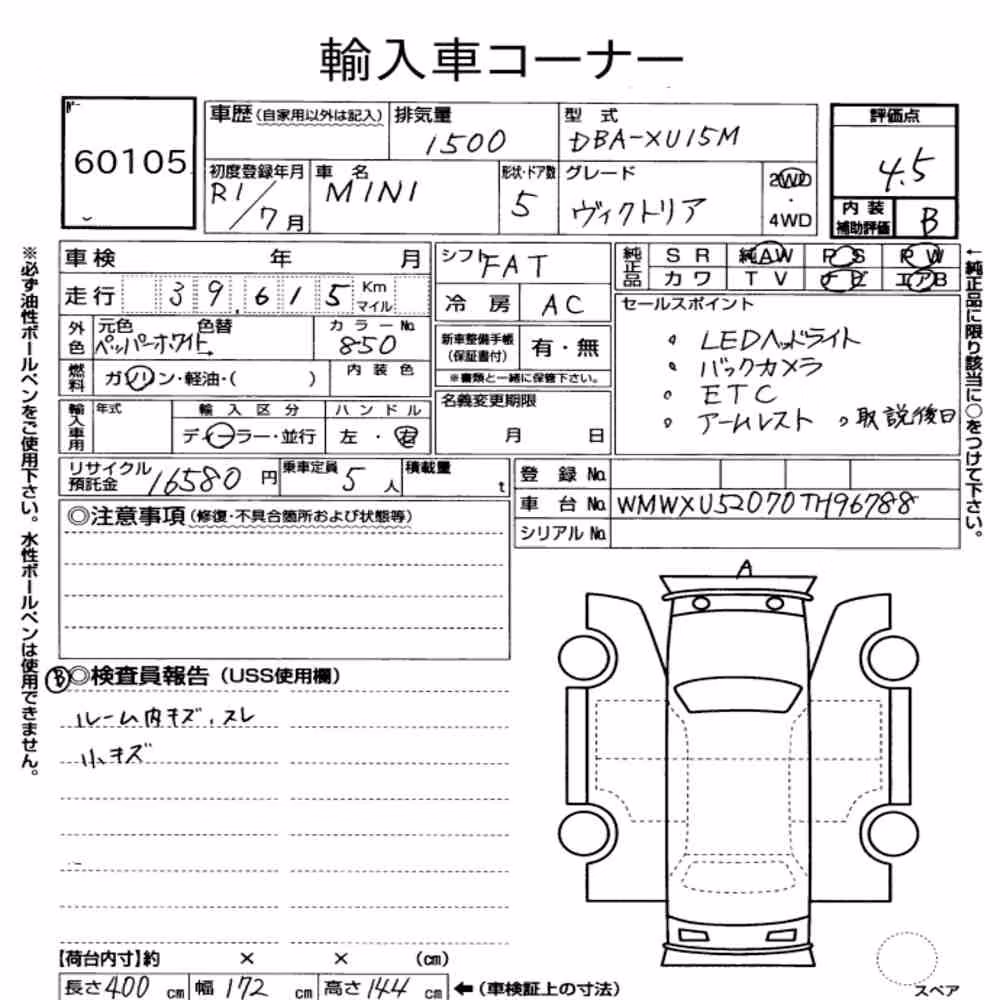 輸入車コーナー
60105
車歴 (自家用以外は記入) 排気量 1500 型式 DBA-XU15M 評価点 4.5
初度登録年月 R1/7月 車名 MINI 形状・ドア数 5 グレード ヴィクトリア 2WD・4WD
内装補助評価 B
車検 年 月 シフト FAT 純正品 SR 純AW PS PW
走行 39,615 Km マイル 冷房 AC カワ TV ナビ エアB
外色 元色 色替 ペッパーホワイト カラーNo. 850 新車整備手帳(保証書付) 有・無
※書類と一緒に保管下さい。
燃料 ガソリン・軽油・( ) 内装色
セールスポイント
。LEDヘッドライト
。バックカメラ
。ETC
。アームレスト 。取説後日
名義変更期限 月 日
輸入車用 年式 輸入区分 ディーラー・並行 ハンドル 左・右
リサイクル預託金 16580円 乗車定員 5人 積載量 t
登録No.
車台No. WMWXU52070TH96788
シリアルNo.
◎注意事項(修復・不具合箇所および状態等)
A
Ⓑ◎検査員報告(USS使用欄)
ルーム内キズ、スレ
小キズ
【荷台内寸】約 × × (cm)
長さ400cm 幅172cm 高さ144cm ←(車検証上の寸法)
スペア
※必ず油性ボールペンをご使用下さい。水性ボールペンは使用できません。
←純正品に限り該当に○をつけて下さい。